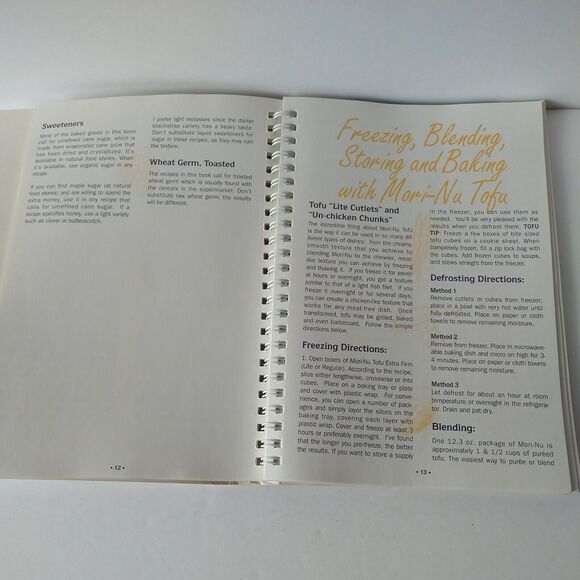 Sweeteners
Most of the baked goods in this book
call for unrefined cane sugar, which is
made from evaporated cane juice that
has been dried and crystallized. It's
available in natural food stores. When
it's available, use organic sugar in any
recipe.
If you can find maple sugar (at natural
food stores) and are willing to spend the
extra money, use it in any recipe that
calls for unrefined cane sugar. If a
recipe specifies honey, use a light variety
such as clover or butterscotch.
I prefer light molasses since the darker
blackstrap variety has a heavy taste.
Don't substitute liquid sweeteners for
sugar in these recipes, as they may ruin
the texture.
Wheat Germ, Toasted
The recipes in this book call for toasted
wheat germ which is usually found with
the cereals in the supermarket. Don't
substitute raw wheat germ; the results
will be different.
• 12 •
Freezing, Blending,
Storing and Baking
with Mori-Nu Tofu
Tofu "Lite Cutlets" and
"Un-chicken Chunks"
The incredible thing about Mori-Nu Tofu
is the way it can be used in so many dif-
ferent types of dishes: from the creamy,
smooth texture that you achieve by
blending Mori-Nu to the chewier, meat-
like texture you can achieve by freezing
and thawing it. If you freeze it for sever-
al hours or overnight, you get a texture
similar to that of a light fish filet. If you
freeze it overnight or for several days,
you can create a chicken-like texture that
works for any meat-free dish. Once
transformed, tofu may be grilled, baked
and even barbecued. Follow the simple
directions below.
Freezing Directions:
1. Open boxes of Mori-Nu Tofu Extra Firm
(Lite or Regular). According to the recipe,
slice either lengthwise, crosswise or into
cubes. Place on a baking tray or plate
and cover with plastic wrap. For conve-
nience, you can open a number of pack-
ages and simply layer the slices on the
baking tray, covering each layer with
plastic wrap. Cover and freeze at least 3
hours or preferably overnight. I've found
that the longer you pre-freeze, the better
the results. If you want to store a supply
in the freezer, you can use them as
needed. You'll be very pleased with the
results when you defrost them. TOFU
TIP: Freeze a few boxes of bite sized
tofu cubes on a cookie sheet. When
completely frozen, fill a zip lock bag with
the cubes. Add frozen cubes to soups,
and stews straight from the freezer.
Defrosting Directions:
Method 1
Remove cutlets or cubes from freezer;
place in a bowl with very hot water until
fully defrosted. Place on paper or cloth
towels to remove remaining moisture.
Method 2
Remove from freezer. Place in microwave-
able baking dish and micro on high for 3-
4 minutes. Place on paper or cloth towels
to remove remaining moisture.
Method 3
Let defrost for about an hour at room
temperature or overnight in the refrigera-
tor. Drain and pat dry.
Blending:
One 12.3 oz. package of Mori-Nu is
approximately 1 & 1/2 cups of puréed
tofu. The easiest way to purée or blend
• 13 •